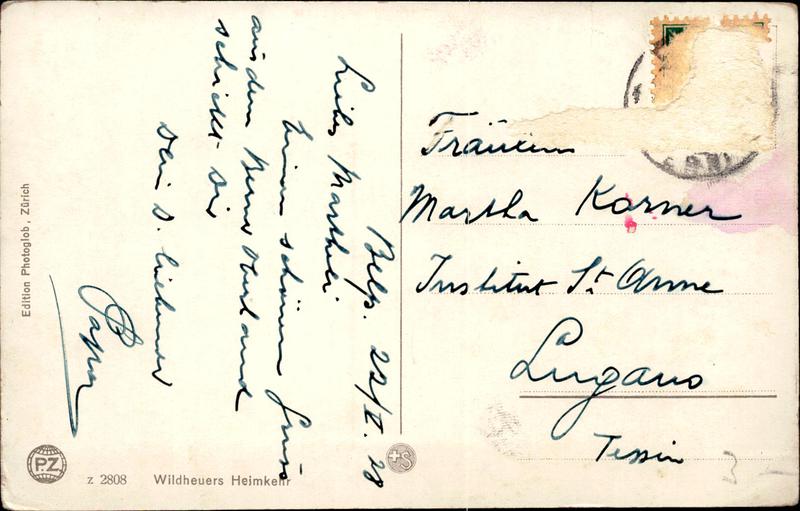 Belp. 22/V. 28
Liebes Martheli
Einen schönen Gruss
aus dem Berner Oberland
schickt Dir
Dein D. liebender
Papa
Fräulein
Martha Korner
Institut St. Anne
Lugano
Tessin
Edition Photoglob, Zürich
PZ
z 2808 Wildheuers Heimkehr
S